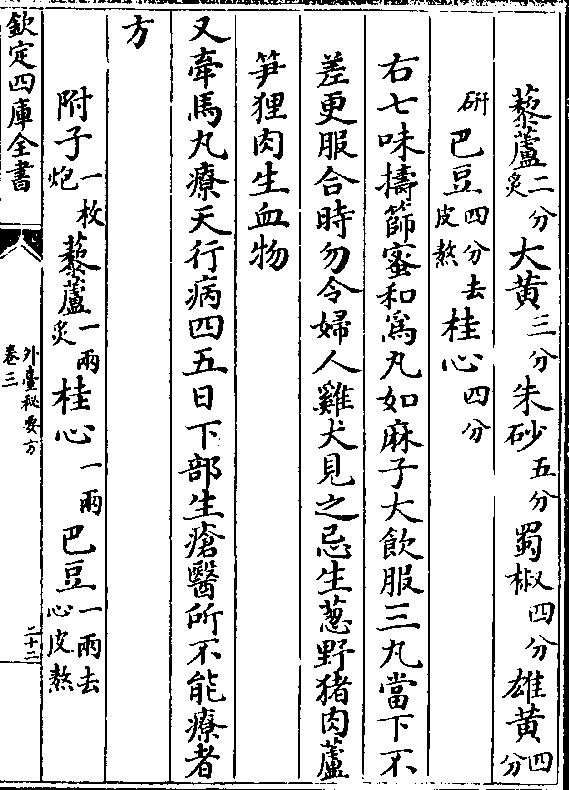 藜蘆二分炙大黃三分朱砂五分蜀椒四分雄黃四分
研巴豆四分去皮熬桂心四分
右七味擣篩蜜和為丸如麻子大飲服三丸當下不
差更服合時勿令婦人雞犬見之忌生葱野猪肉蘆
笋狸肉生血物
又牽馬丸療天行病四五日下部生瘡醫所不能療者
方
附子一枚炮藜蘆一兩炙桂心一兩巴豆一兩去心皮熬
欽定四庫全書
外臺秘要方
卷三
二十二